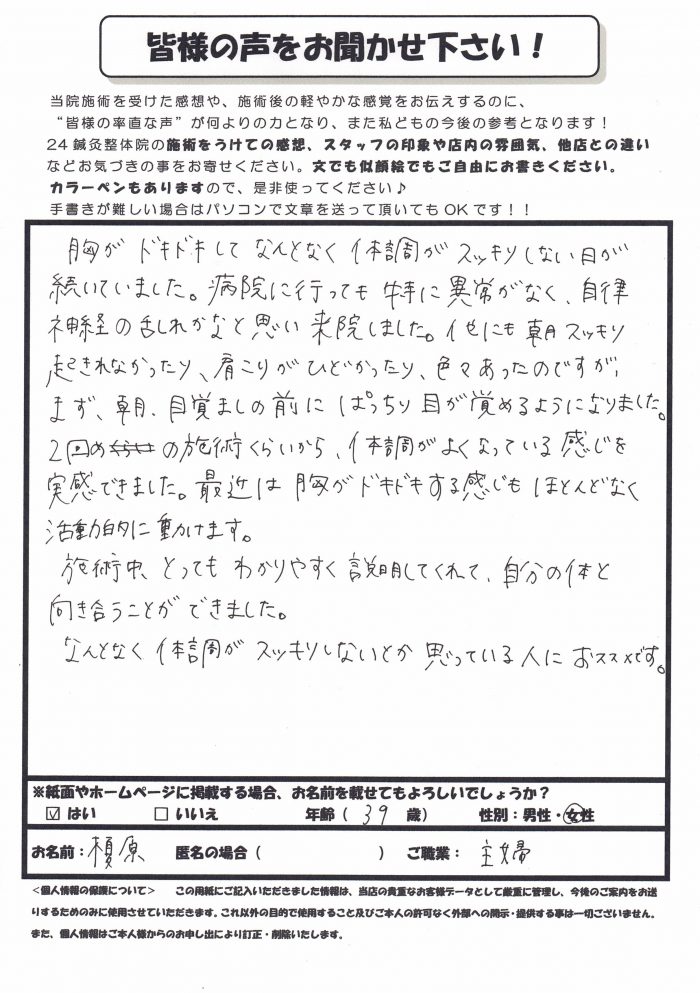 皆様の声をお聞かせ下さい！
当院施術を受けた感想や、施術後の軽やかな感覚をお伝えするのに、
“皆様の率直な声”が何よりの力となり、また私どもの今後の参考となります！
24鍼灸整体院の施術をうけての感想、スタッフの印象や店内の雰囲気、他店との違い
などお気づきの事をお寄せください。文でも似顔絵でもご自由にお書きください。
カラーペンもありますので、是非使ってください♪
手書きが難しい場合はパソコンで文章を送って頂いてもOKです！！
胸がドキドキしてなんとなく体調がスッキリしない日が
続いていました。病院に行っても特に異常がなく、自律
神経の乱れかなと思い来院しました。他にも朝スッキリ
起きれなかったり、肩こりがひどかったり、色々あったのですが、
まず、朝、目覚ましの前にぱっちり目が覚めるようになりました。
2回めの施術くらいから、体調がよくなっている感じを
実感できました。最近は胸がドキドキする感じもほとんどなく
活動的に動けます。
施術中、とってもわかりやすく説明してくれて、自分の体と
向き合うことができました。
なんとなく体調がスッキリしないとか思っている人におススメです。
※紙面やホームページに掲載する場合、お名前を載せてもよろしいでしょうか？
☑ はい □ いいえ 年齢（ 39 歳） 性別：男性・女性
お名前：榎原 匿名の場合（ ） ご職業： 主婦
＜個人情報の保護について＞ この用紙にご記入いただきました情報は、当店の貴重なお客様データとして厳重に管理し、今後のご案内をお送
りするためのみに使用させていただきます。これ以外の目的で使用すること及びご本人の許可なく外部への開示・提供する事は一切ございません。
また、個人情報はご本人様からのお申し出により訂正・削除いたします。